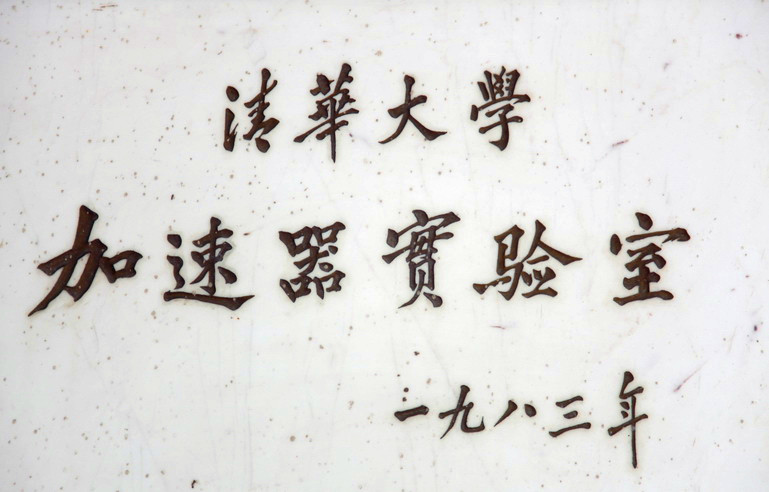 清華大學
加速器實验室
一九八三年